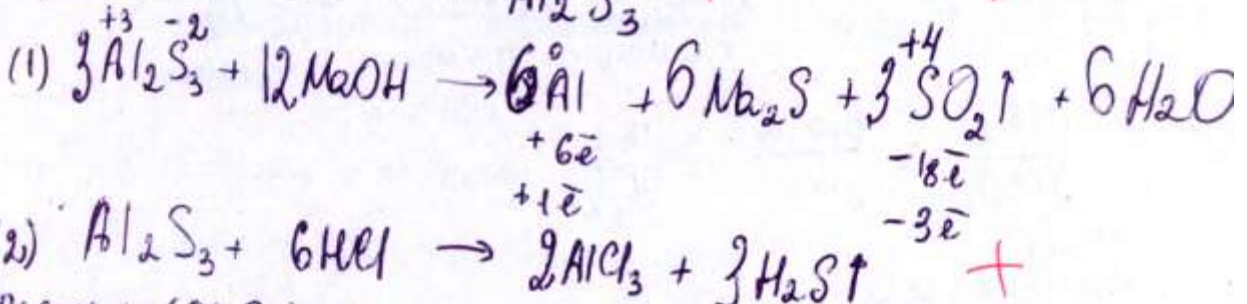 Al₂S₃
(1) 3Al₂⁺³S₃⁻² + 12NaOH → 6Al⁰ + 6Na₂S + 3S⁺⁴O₂↑ + 6H₂O
+6ē −18ē
+1ē −3ē
2) Al₂S₃ + 6HCl → 2AlCl₃ + 3H₂S↑ +